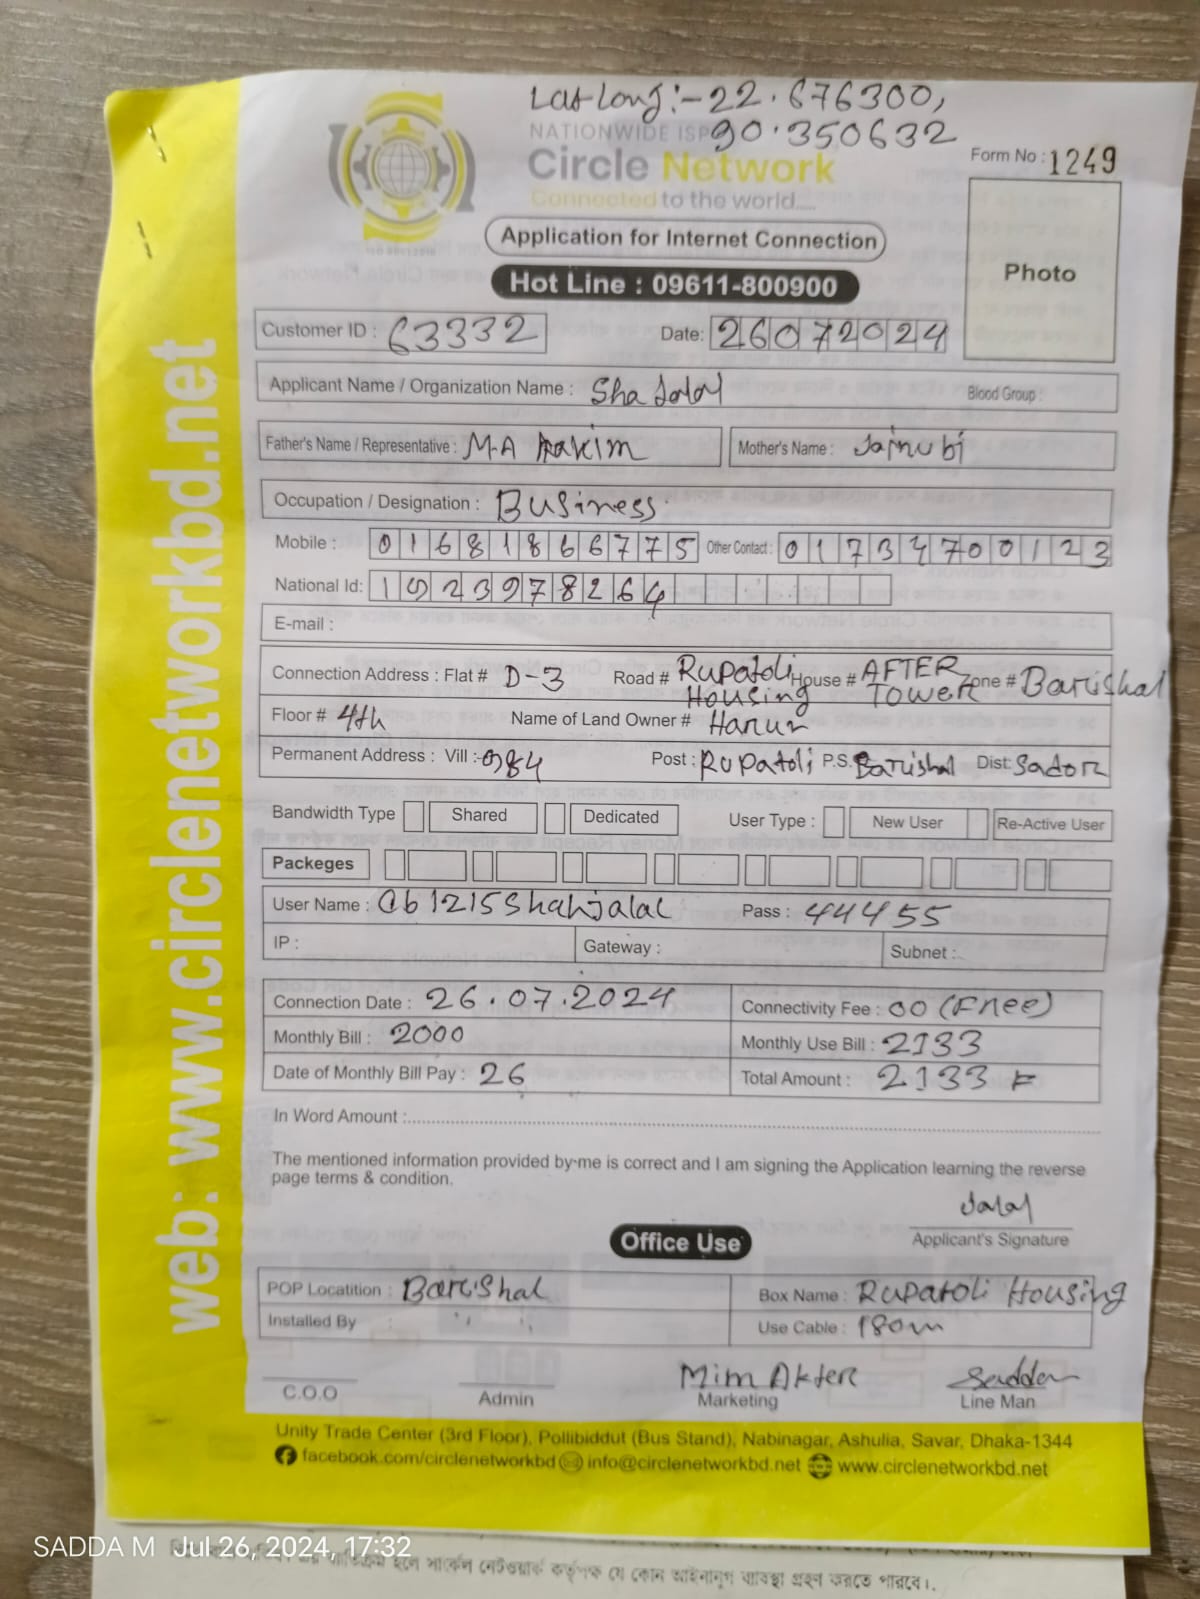 Lat Long:-22.676300,
90.350632
NATIONWIDE ISP
Circle Network
Connected to the world.....
Form No : 1249
Photo
Application for Internet Connection
Hot Line : 09611-800900
Customer ID : 63332 Date: 26072024
Applicant Name / Organization Name : Sha Jalal Blood Group :
Father's Name / Representative : M.A Hakim Mother's Name : Jainubi
Occupation / Designation : Business
Mobile : 01681866775 Other Contact : 01734700123
National Id: 1923978264
E-mail :
Connection Address : Flat # D-3 Road # Rupatoli Housing House # AFTER TOWER Zone # Barishal
Floor # 4th Name of Land Owner # Harun
Permanent Address : Vill : 984 Post : Rupatoli P.S. Barishal Dist: Sador
Bandwidth Type Shared Dedicated User Type : New User Re-Active User
Packeges
User Name : @b1215shahjalal Pass : 44455
IP : Gateway : Subnet :
Connection Date : 26.07.2024 Connectivity Fee : 00 (Free)
Monthly Bill : 2000 Monthly Use Bill : 2133
Date of Monthly Bill Pay : 26 Total Amount : 2133
In Word Amount :
The mentioned information provided by me is correct and I am signing the Application learning the reverse
page terms & condition.
Jalal
Applicant's Signature
Office Use
POP Locatition : Barishal Box Name : Rupatoli Housing
Installed By : Use Cable : 180m
Mim Akter Saddam
C.O.O Admin Marketing Line Man
Unity Trade Center (3rd Floor), Pollibiddut (Bus Stand), Nabinagar, Ashulia, Savar, Dhaka-1344
facebook.com/circlenetworkbd info@circlenetworkbd.net www.circlenetworkbd.net
web: www.circlenetworkbd.net
SADDA M Jul 26, 2024, 17:32
হলে সার্কেল নেটওয়ার্ক কর্তৃপক্ষ যে কোন আইনানুগ ব্যবস্থা গ্রহণ করতে পারবে।